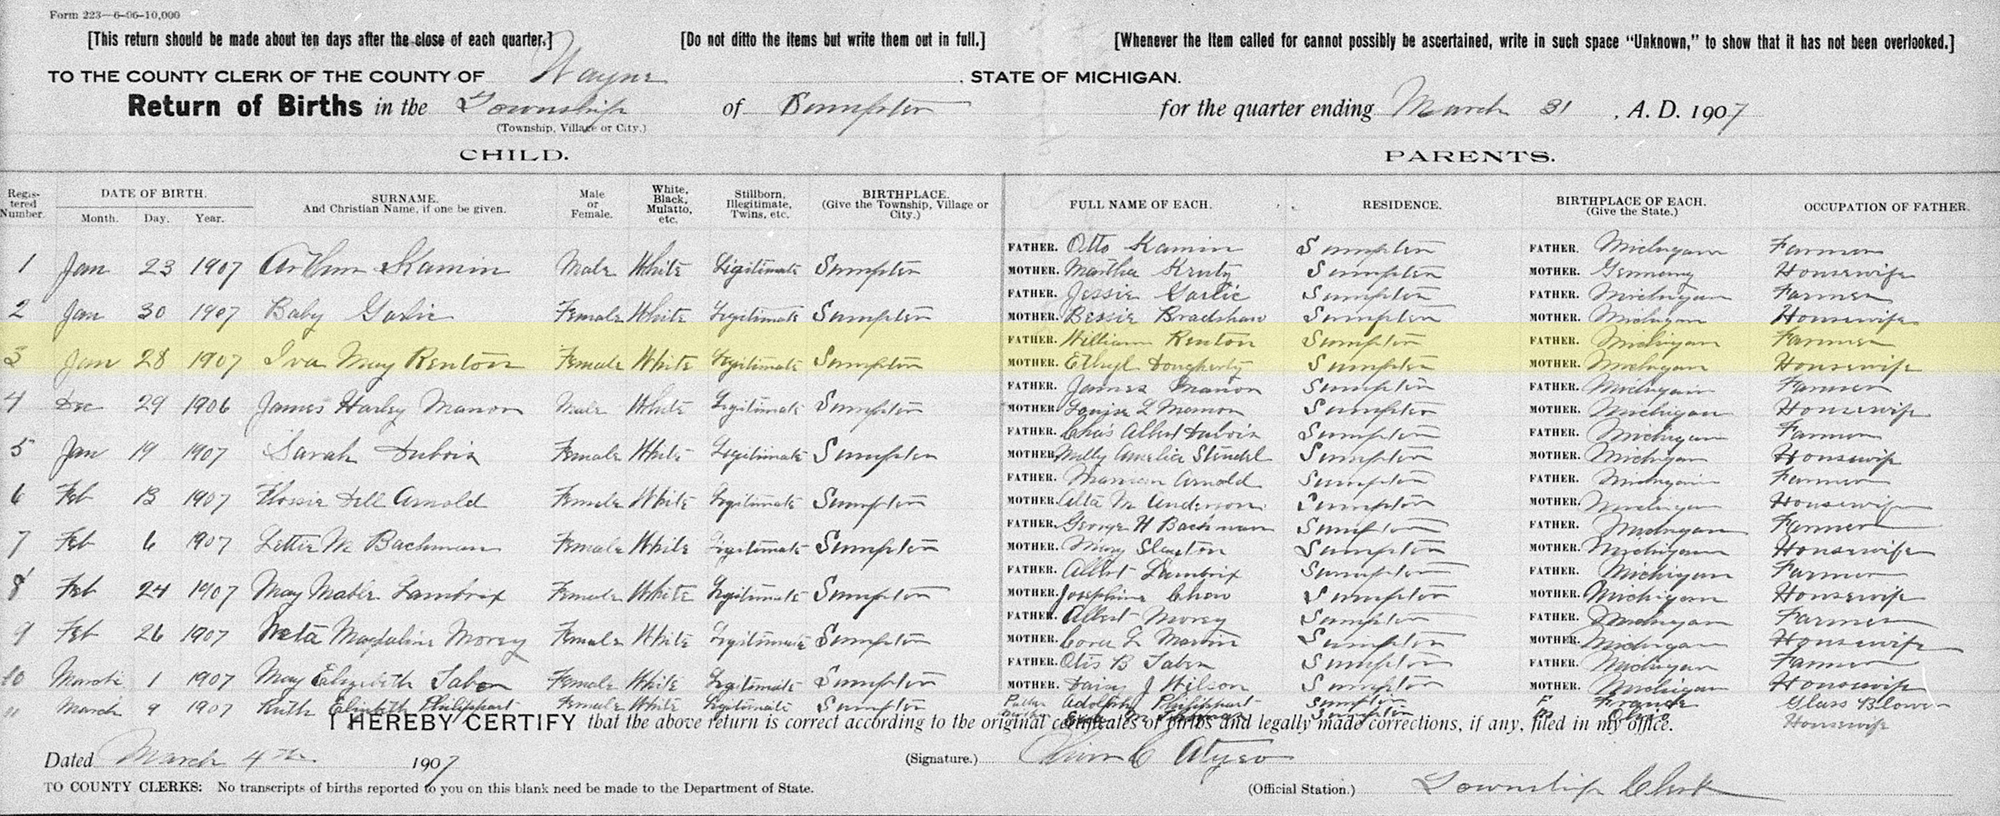 Form 223—6-06-10,000
[This return should be made about ten days after the close of each quarter.] [Do not ditto the items but write them out in full.] [Whenever the item called for cannot possibly be ascertained, write in such space "Unknown," to show that it has not been overlooked.]
TO THE COUNTY CLERK OF THE COUNTY OF Wayne, STATE OF MICHIGAN.
Return of Births in the Township of Sumpter for the quarter ending March 31, A. D. 1907
(Township, Village or City.)
CHILD. PARENTS.
Registered Number. DATE OF BIRTH. Month. Day. Year. SURNAME. And Christian Name, if one be given. Male or Female. White, Black, Mulatto, etc. Stillborn, Illegitimate, Twins, etc. BIRTHPLACE. (Give the Township, Village or City.) FULL NAME OF EACH. RESIDENCE. BIRTHPLACE OF EACH. (Give the State.) OCCUPATION OF FATHER.
FATHER. Otto Kamin Sumpter FATHER. Michigan Farmer
1 Jan 23 1907 Arthur Kamin Male White Legitimate Sumpter MOTHER. Martha Sumpter MOTHER. Germany Housewife
FATHER. Jessie Garlic Sumpter FATHER. Michigan Farmer
2 Jan 30 1907 Baby Garlic Female White Legitimate Sumpter MOTHER. Bessie Bradshaw Sumpter MOTHER. Michigan Housewife
FATHER. William Renton Sumpter FATHER. Michigan Farmer
3 Jan 28 1907 Iva May Renton Female White Legitimate Sumpter MOTHER. Ethyl Dougherty Sumpter MOTHER. Michigan Housewife
FATHER. James Manon Sumpter FATHER. Michigan Farmer
4 Dec 29 1906 James Harley Manon Male White Legitimate Sumpter MOTHER. Louise L Manon Sumpter MOTHER. Michigan Housewife
FATHER. Chas Albert Dubois Sumpter FATHER. Michigan Farmer
5 Jan 19 1907 Sarah Dubois Female White Legitimate Sumpter MOTHER. Milly Amelia Sumpter MOTHER. Michigan Housewife
FATHER. Arnold Sumpter FATHER. Michigan Farmer
6 Feb 13 1907 Flossie Dell Arnold Female White Legitimate Sumpter MOTHER. Alta M Anderson Sumpter MOTHER. Michigan Housewife
FATHER. George H Bachman Sumpter FATHER. Michigan Farmer
7 Feb 6 1907 Lettie M Bachman Female White Legitimate Sumpter MOTHER. Mary Sumpter MOTHER. Michigan Housewife
FATHER. Albert Lambrix Sumpter FATHER. Michigan Farmer
8 Feb 24 1907 May Mable Lambrix Female White Legitimate Sumpter MOTHER. Josephine Sumpter MOTHER. Michigan Housewife
FATHER. Albert Morey Sumpter FATHER. Michigan Farmer
9 Feb 26 1907 Neta Magdaline Morey Female White Legitimate Sumpter MOTHER. Cora L Martin Sumpter MOTHER. Michigan Housewife
FATHER. Otis B Taber Sumpter FATHER. Michigan Farmer
10 March 1 1907 May Elizabeth Taber Female White Legitimate Sumpter MOTHER. Daisy J Wilson Sumpter MOTHER. Michigan Housewife
11 March 9 1907 Ruth Elizabeth Philiphart Female White Legitimate Sumpter Father Adolph Philiphart Sumpter F France Glass Blower
Mother Sumpter Housewife
I HEREBY CERTIFY that the above return is correct according to the original certificates of births and legally made corrections, if any, filed in my office.
Dated March 4th 1907 (Signature.) C Atyeo
TO COUNTY CLERKS: No transcripts of births reported to you on this blank need be made to the Department of State. (Official Station.) Township Clerk